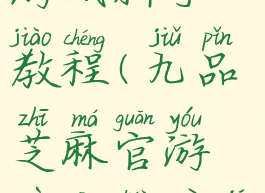 jiào chéng jiǔ pǐn
教程(九品
zhī má guān yóu
芝麻官游